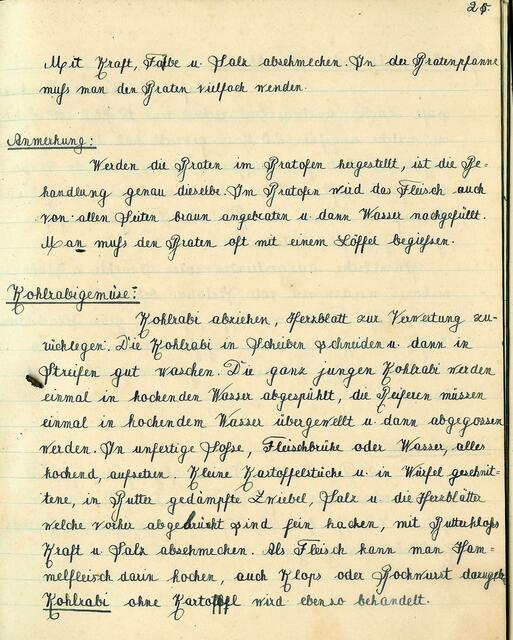 25.
Mit Kraft, Farbe u. Salz abschmecken. In der Bratenpfanne
muss man den Braten vielfach wenden.
Anmerkung:
Werden die Braten im Bratofen hergestellt, ist die Be-
handlung genau dieselbe. Im Bratofen wird das Fleisch auch
von allen Seiten braun angebraten u. dann Wasser nachgefüllt.
Man muss den Braten oft mit einem Löffel begiessen.
Kohlrabigemüse:
Kohlrabi abziehen, Herzblatt zur Verwertung zu-
rücklegen. Die Kohlrabi in Scheiben schneiden u. dann in
Streifen gut waschen. Die ganz jungen Kohlrabi werden
einmal in kochenden Wasser abgespühlt, die Reiferen müssen
einmal in kochendem Wasser übergewellt u. dann abgegossen
werden. In unfertige Sosse, Fleischbrühe oder Wasser, alles
kochend, aufsetzen. Kleine Kartoffelstücke u. in Würfel geschnit-
tene, in Butter gedämpfte Zwiebel, Salz u. die Herzblätter
welche vorher abgebrückt sind fein hacken, mit Butterkloss
Kraft u. Salz abschmecken. Als Fleisch kann man Ham-
melfleisch darin kochen, auch Klops oder Bockwurst
Kohlrabi ohne Kartoffel wird ebenso behandelt.